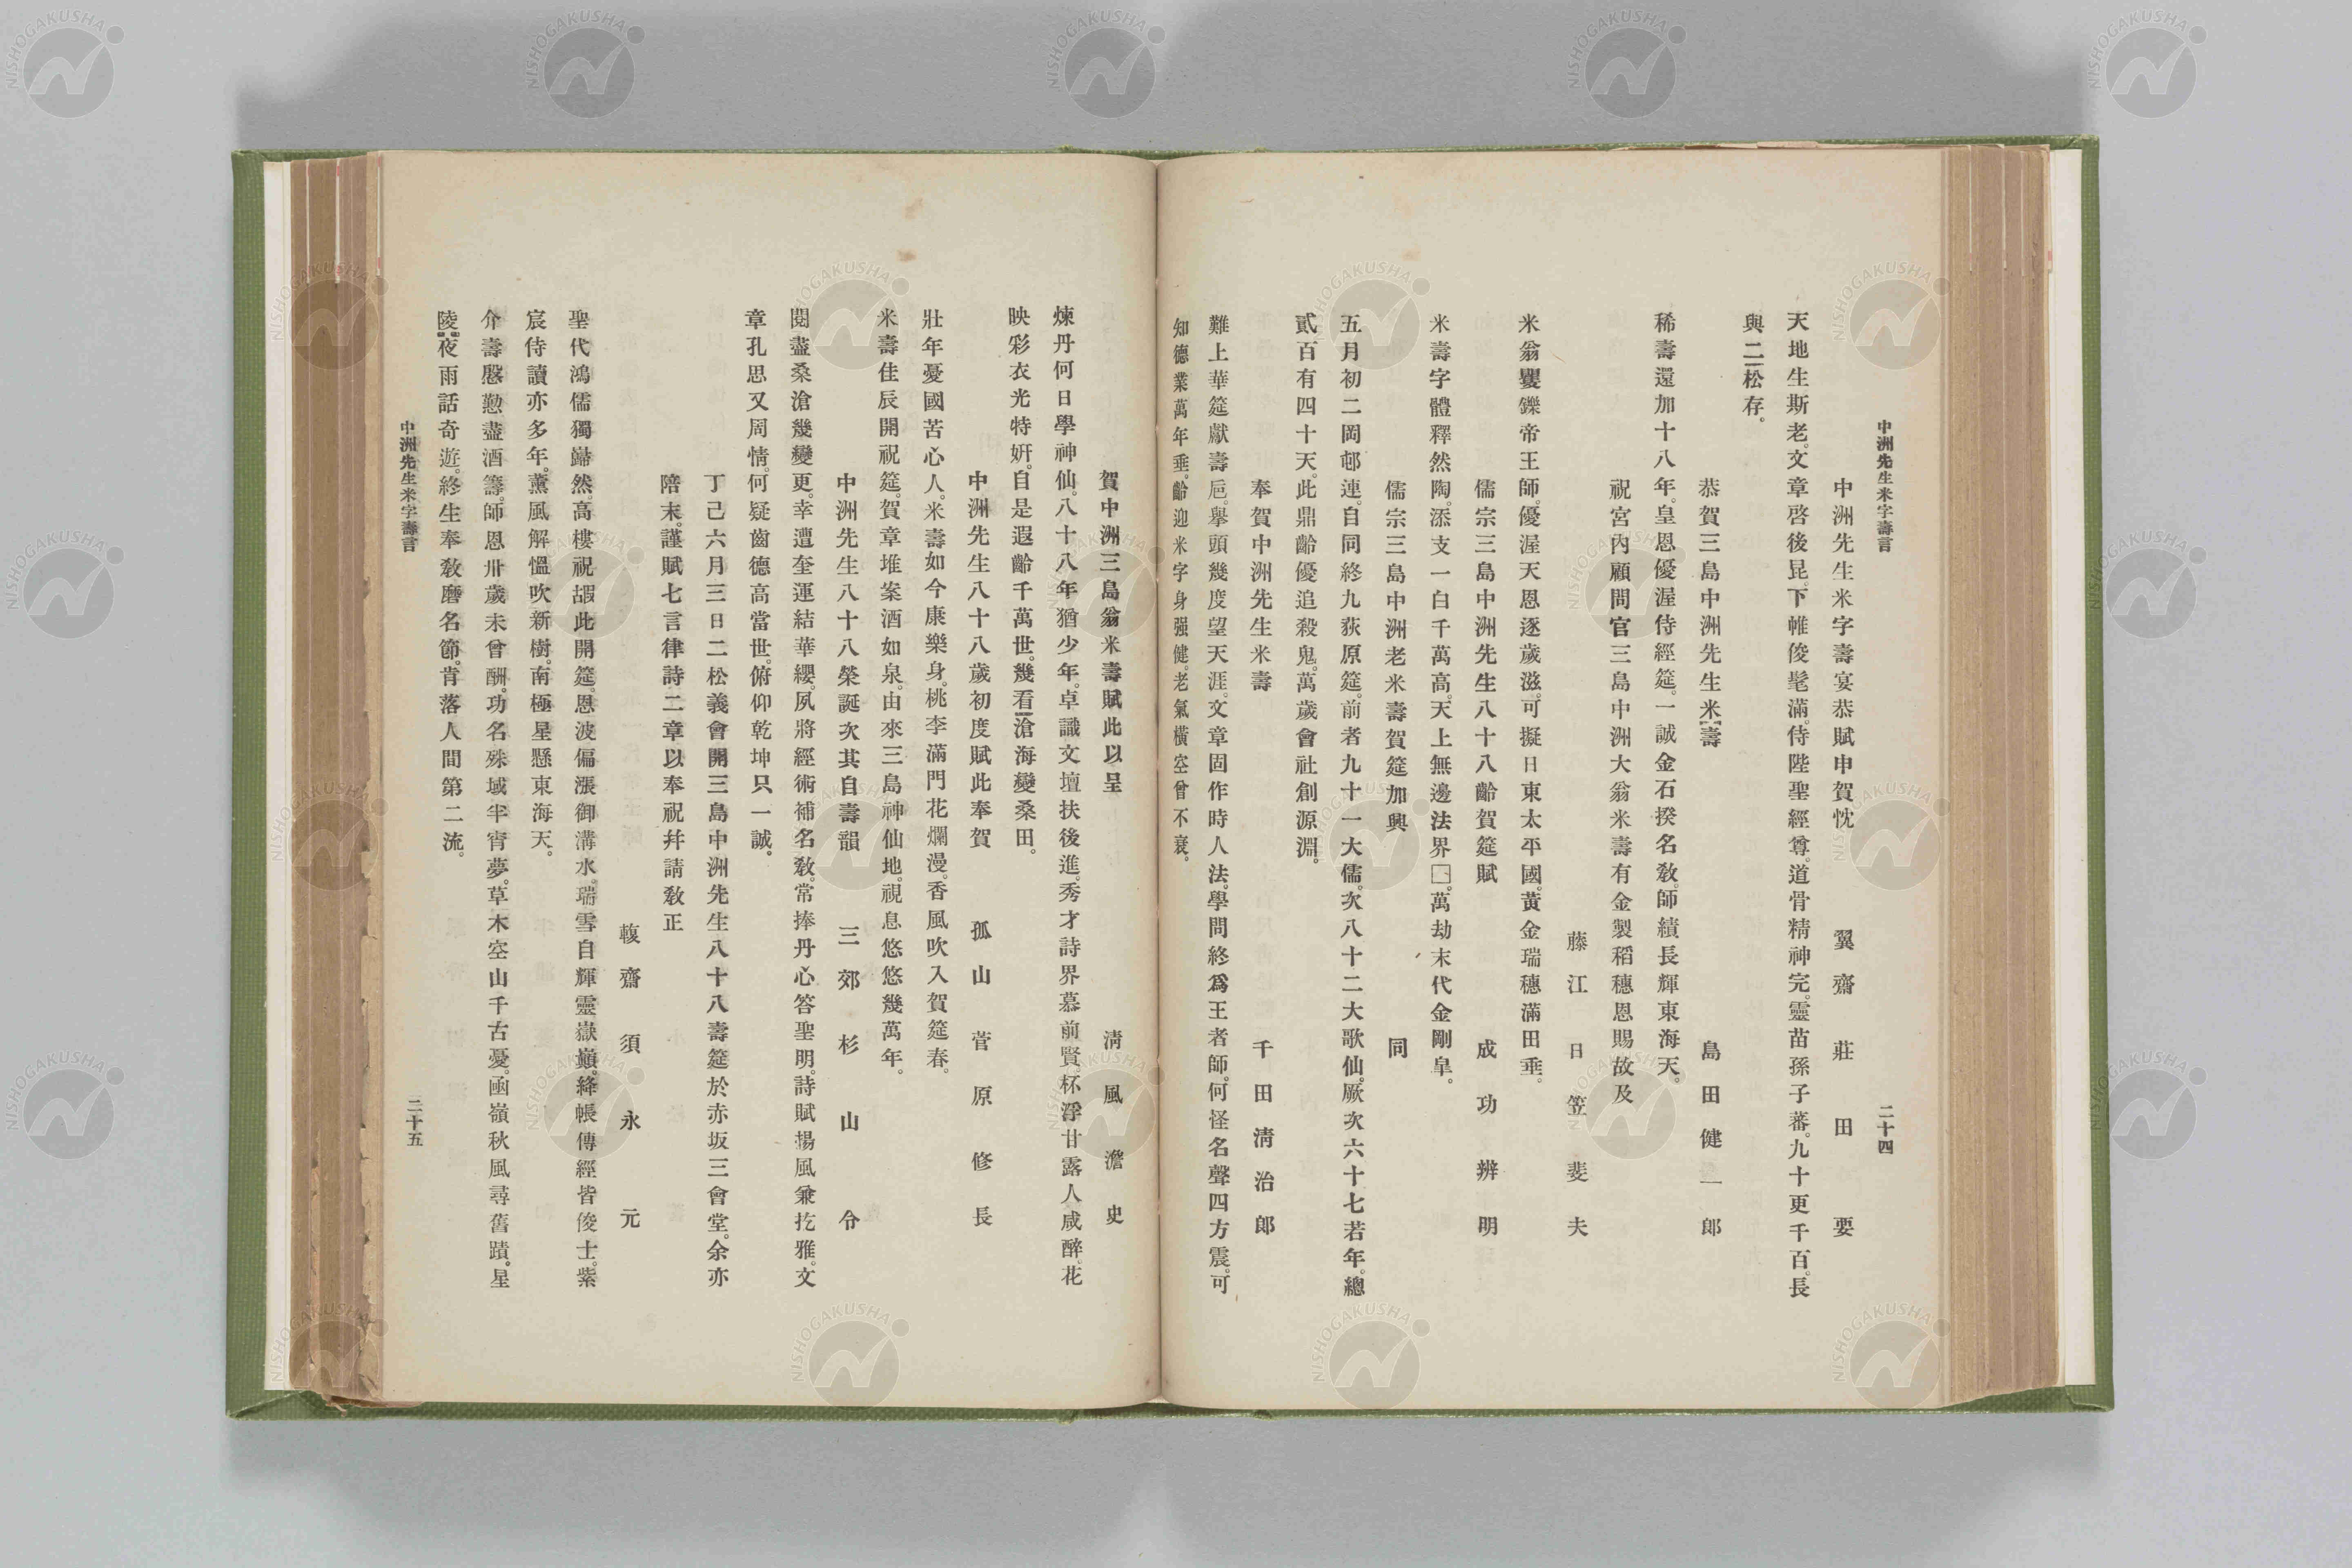 中洲先生米字壽言 二十四
中洲先生米字壽宴恭賦申賀忱 翼齋 莊田要
天地生斯老。文章啓後昆。下帷俊髦滿。侍陛聖經尊。道骨精神完。靈苗孫子蕃。九十更千百。長
與二松存。
恭賀三島中洲先生米壽 島田健一郎
稀壽還加十八年。皇恩優渥侍經筵。一誠金石揆名敎。師績長輝東海天。
祝宮內顧問官三島中洲大翁米壽有金製稻穗恩賜故及
藤江 日笠斐夫
米翁矍鑠帝王師。優渥天恩逐歲滋。可擬日東太平國。黃金瑞穗滿田垂。
儒宗三島中洲先生八十八齡賀筵賦 成功辨明
米壽字體釋然陶。添支一白千萬高。天上無邊法界□。萬劫末代金剛皐。
儒宗三島中洲老米壽賀筵加興 同
五月初二岡邨連。自同終九荻原筵。前者九十一大儒。次八十二大歌仙。厥次六十七若年。總
貳百有四十天。此鼎齡優追殺鬼。萬歲會社創源淵。
奉賀中洲先生米壽 千田淸治郎
難上華筵獻壽巵。擧頭幾度望天涯。文章固作時人法。學問終爲王者師。何怪名聲四方震。可
知德業萬年垂。齡迎米字身强健。老氣橫空曾不衰。
賀中洲三島翁米壽賦此以呈 淸風澹史
煉丹何日學神仙。八十八年猶少年。卓識文壇扶後進。秀才詩界慕前賢。杯浮甘露人咸醉。花
映彩衣光特姸。自是遐齡千萬世。幾看滄海變桑田。
中洲先生八十八歲初度賦此奉賀 孤山 菅原修長
壯年憂國苦心人。米壽如今康樂身。桃李滿門花爛漫。香風吹入賀筵春。
米壽佳辰開祝筵。賀章堆案酒如泉。由來三島神仙地。視息悠悠幾萬年。
中洲先生八十八榮誕次其自壽韻 三郊 杉山令
閱盡桑滄幾變更。幸遭奎運結華纓。夙將經術補名敎。常捧丹心答聖明。詩賦揚風兼扢雅。文
章孔思又周情。何疑齒德高當世。俯仰乾坤只一誠。
丁己六月三日二松義會開三島中洲先生八十八壽筵於赤坂三會堂。余亦
陪末。謹賦七言律詩二章以奉祝幷請敎正
輹齋 須永元
聖代鴻儒獨巋然。高樓祝嘏此開筵。恩波偏漲御溝水。瑞雪自輝靈嶽巓。絳帳傳經皆俊士。紫
宸侍讀亦多年。薰風解慍吹新樹。南極星懸東海天。
介壽慇懃盡酒籌。師恩卅歲未曾酬。功名殊域半宵夢。草木空山千古憂。函嶺秋風尋舊蹟。星
陵夜雨話奇遊。終生奉敎磨名節。肯落人間第二流。
中洲先生米字壽言 二十五
NISHOGAKUSHA